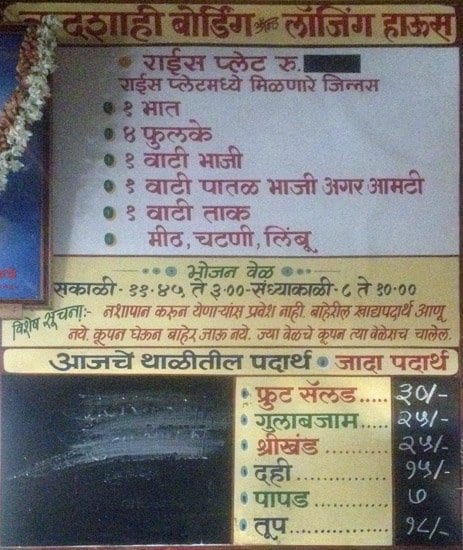 दशाही बोर्डिंग अॅन्ड लॉजिंग हाऊस
राईस प्लेट रु.
राईस प्लेटमध्ये मिळणारे जिन्नस
१ भात
४ फुलके
१ वाटी भाजी
१ वाटी पातळ भाजी अगर आमटी
१ वाटी ताक
मीठ, चटणी, लिंबू
भोजन वेळ
सकाळी - ११.४५ ते ३.०० - संध्याकाळी - ८ ते १०.००
विशेष सूचना:- नशापान करून येणाऱ्यांस प्रवेश नाही. बाहेरील खाद्यपदार्थ आणू
नये. कूपन घेऊन बाहेर जाऊ नये. ज्या वेळचे कूपन त्या वेळेसच चालेल.
आजचे थाळीतील पदार्थ • जादा पदार्थ
फ्रुट सॅलड..... ३०/-
गुलाबजाम..... २५/-
श्रीखंड ........ २५/-
दही ............ १५/-
पापड ......... ७
तूप ............. १८/-